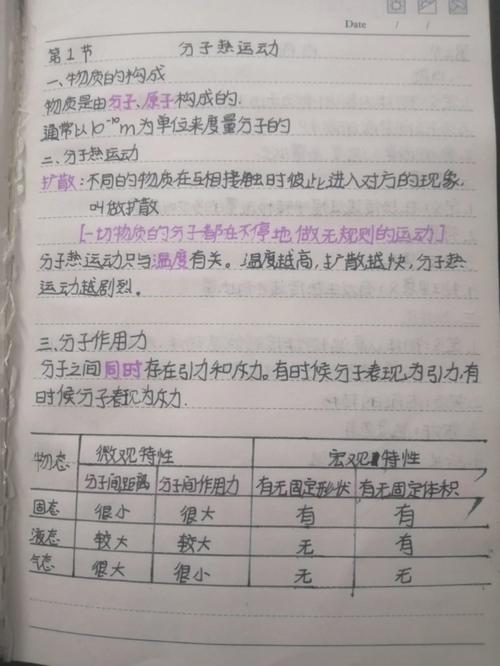 Date / /
第1节 分子热运动
一、物质的构成
物质是由分子、原子构成的.
通常以10⁻¹⁰m为单位来度量分子的
二、分子热运动
扩散:不同的物质在互相接触时彼此进入对方的现象,
叫做扩散
[一切物质的分子都在不停地做无规则的运动]
分子热运动只与温度有关。温度越高,扩散越快,分子热
运动越剧烈。
三.分子作用力
分子之间同时存在引力和斥力。有时候分子表现为引力,有
时候分子表现为斥力.
物态 微观特性 宏观特性
分子间距离 分子间作用力 有无固定形状 有无固定体积
固态 很小 很大 有 有
液态 较大 较大 无 有
气态 很大 很小 无 无